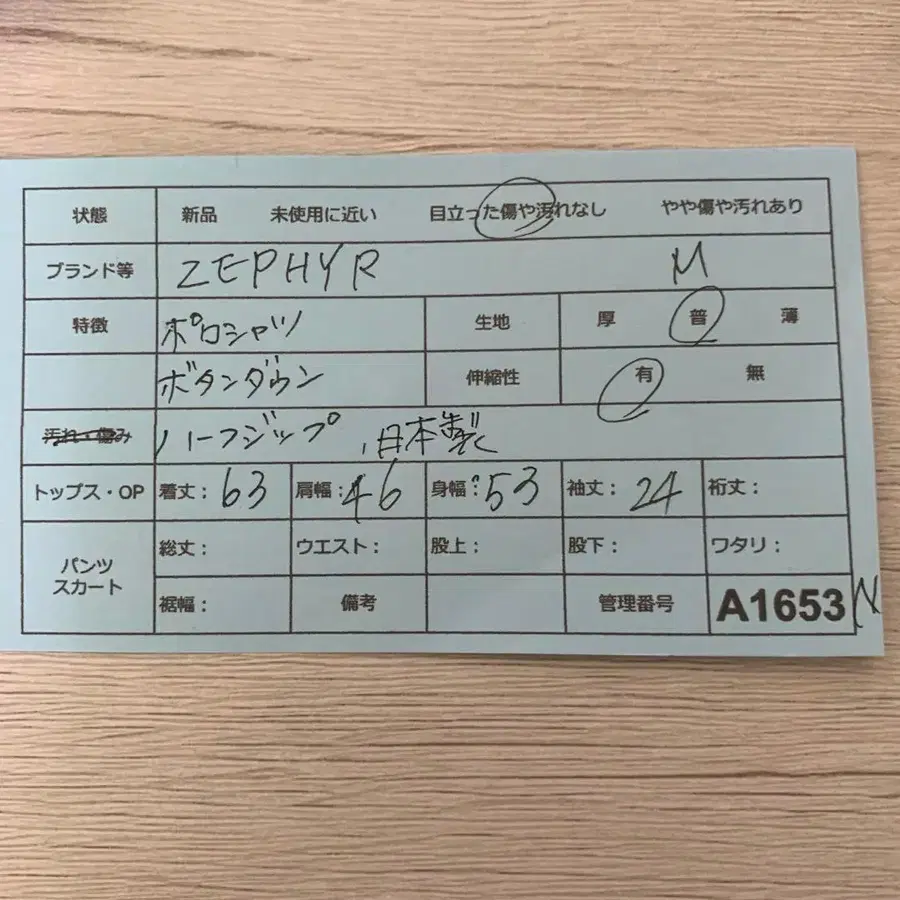 状態 新品 未使用に近い 目立った傷や汚れなし やや傷や汚れあり
ブランド等 ZEPHYR M
特徴 ポロシャツ 生地 厚 普 薄
ボタンダウン 伸縮性 有 無
汚れ・傷み ハーフジップ 日本製
トップス・OP 着丈: 63 肩幅: 46 身幅: 53 袖丈: 24 裄丈:
パンツ スカート 総丈: ウエスト: 股上: 股下: ワタリ:
裾幅: 備考 管理番号 A1653 N